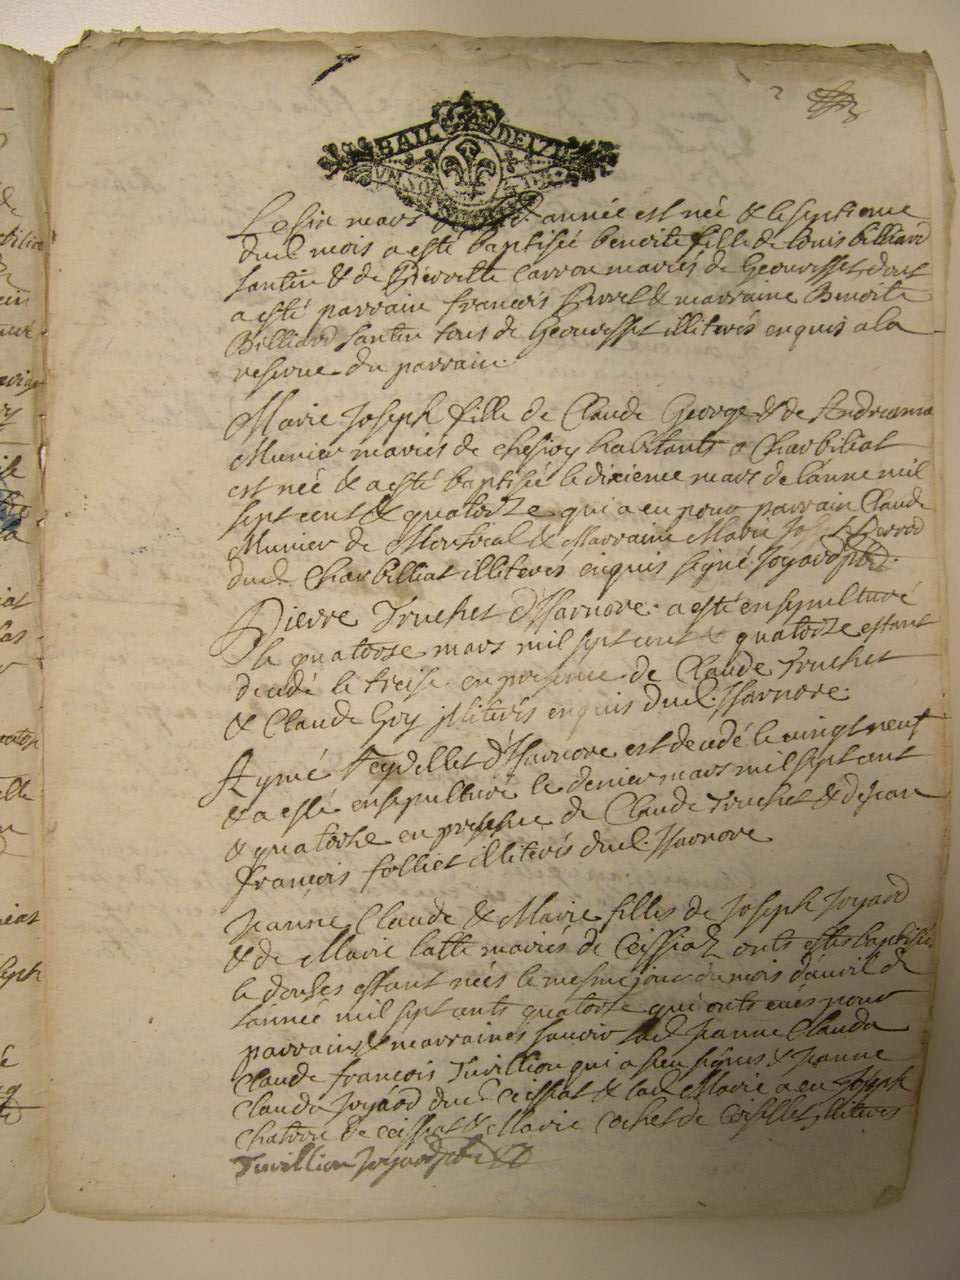 BAIL DE
Le six mars année est née & le septieme
dud. mois a esté baptisée benoite fille de louis billiard
santin & de Pierrette Carron mariés de Geovisset dont
a esté parrain françois & marraine Benoite
Billiard santin tous de Geovisset illiterés enquis a la
reserve du parrain.
Marie Joseph fille de Claude George & de Andrea
Munier mariés de habitants a Charbilliat
est née & a esté baptisée le dixieme mars de lanne mil
sept cent & quatorze qui a eu pour parrain Claude
Munier de Montreal & Marraine Marie Joseph
dud. Charbilliat illiterés enquis signé Joyard
Pierre Truchet d'Isarnore a esté ensepulturé
le quatorze mars mil sept cent & quatorze estant
decedé le treise en presence de Claude Truchet
& Claude Goy illiterés enquis dud. Isarnore.
Aymé Feydellet d'Isarnore est decedé le vingt neuf
& a esté ensepulturé le dernier mars mil sept cent
& quatorze en presence de Claude Truchet & de Jean
françois folliet illiterés dud. Isarnore
Jeanne Claude & Marie filles de Joseph Joyard
& de Marie latte mariés de Ceissiat onts estes baptisées
le douse estant nées le mesme jour du mois d'avril de
lannée mil sept cents quatorze qui onts eues pour
parrains & marraines scavoir lad. Jeanne Clauda
Claude françois Tuvillion qui a sieu signer & Jeanne
Clauda Joyard dud. Ceissiat & lad. Marie a eu Joseph
de Ceissiat & Marie Cochet de illiterés
Tuvillion Joyard